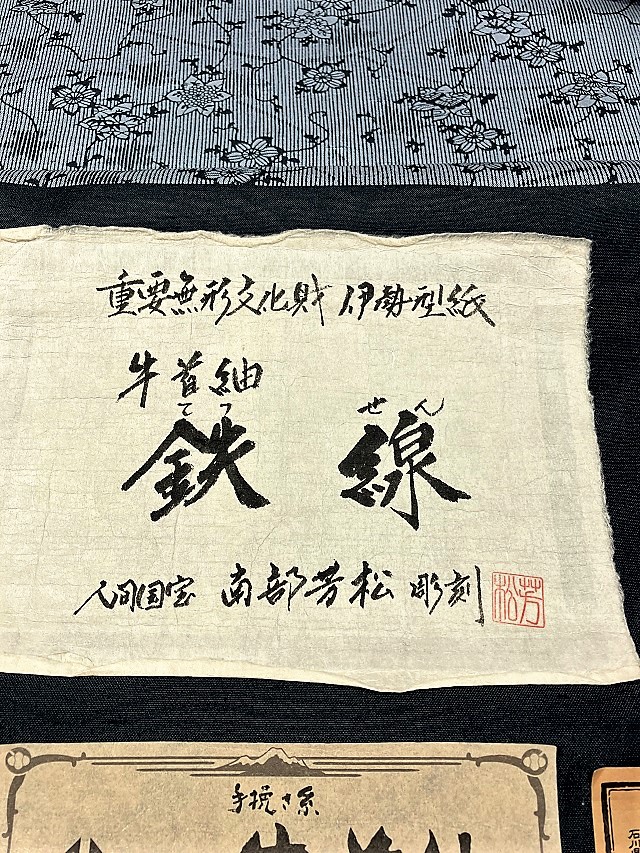 重要無形文化財 伊勢型紙
牛首紬
てつ せん
鉄 線
人間国宝 南部芳松 彫刻
芳松
手挽き糸